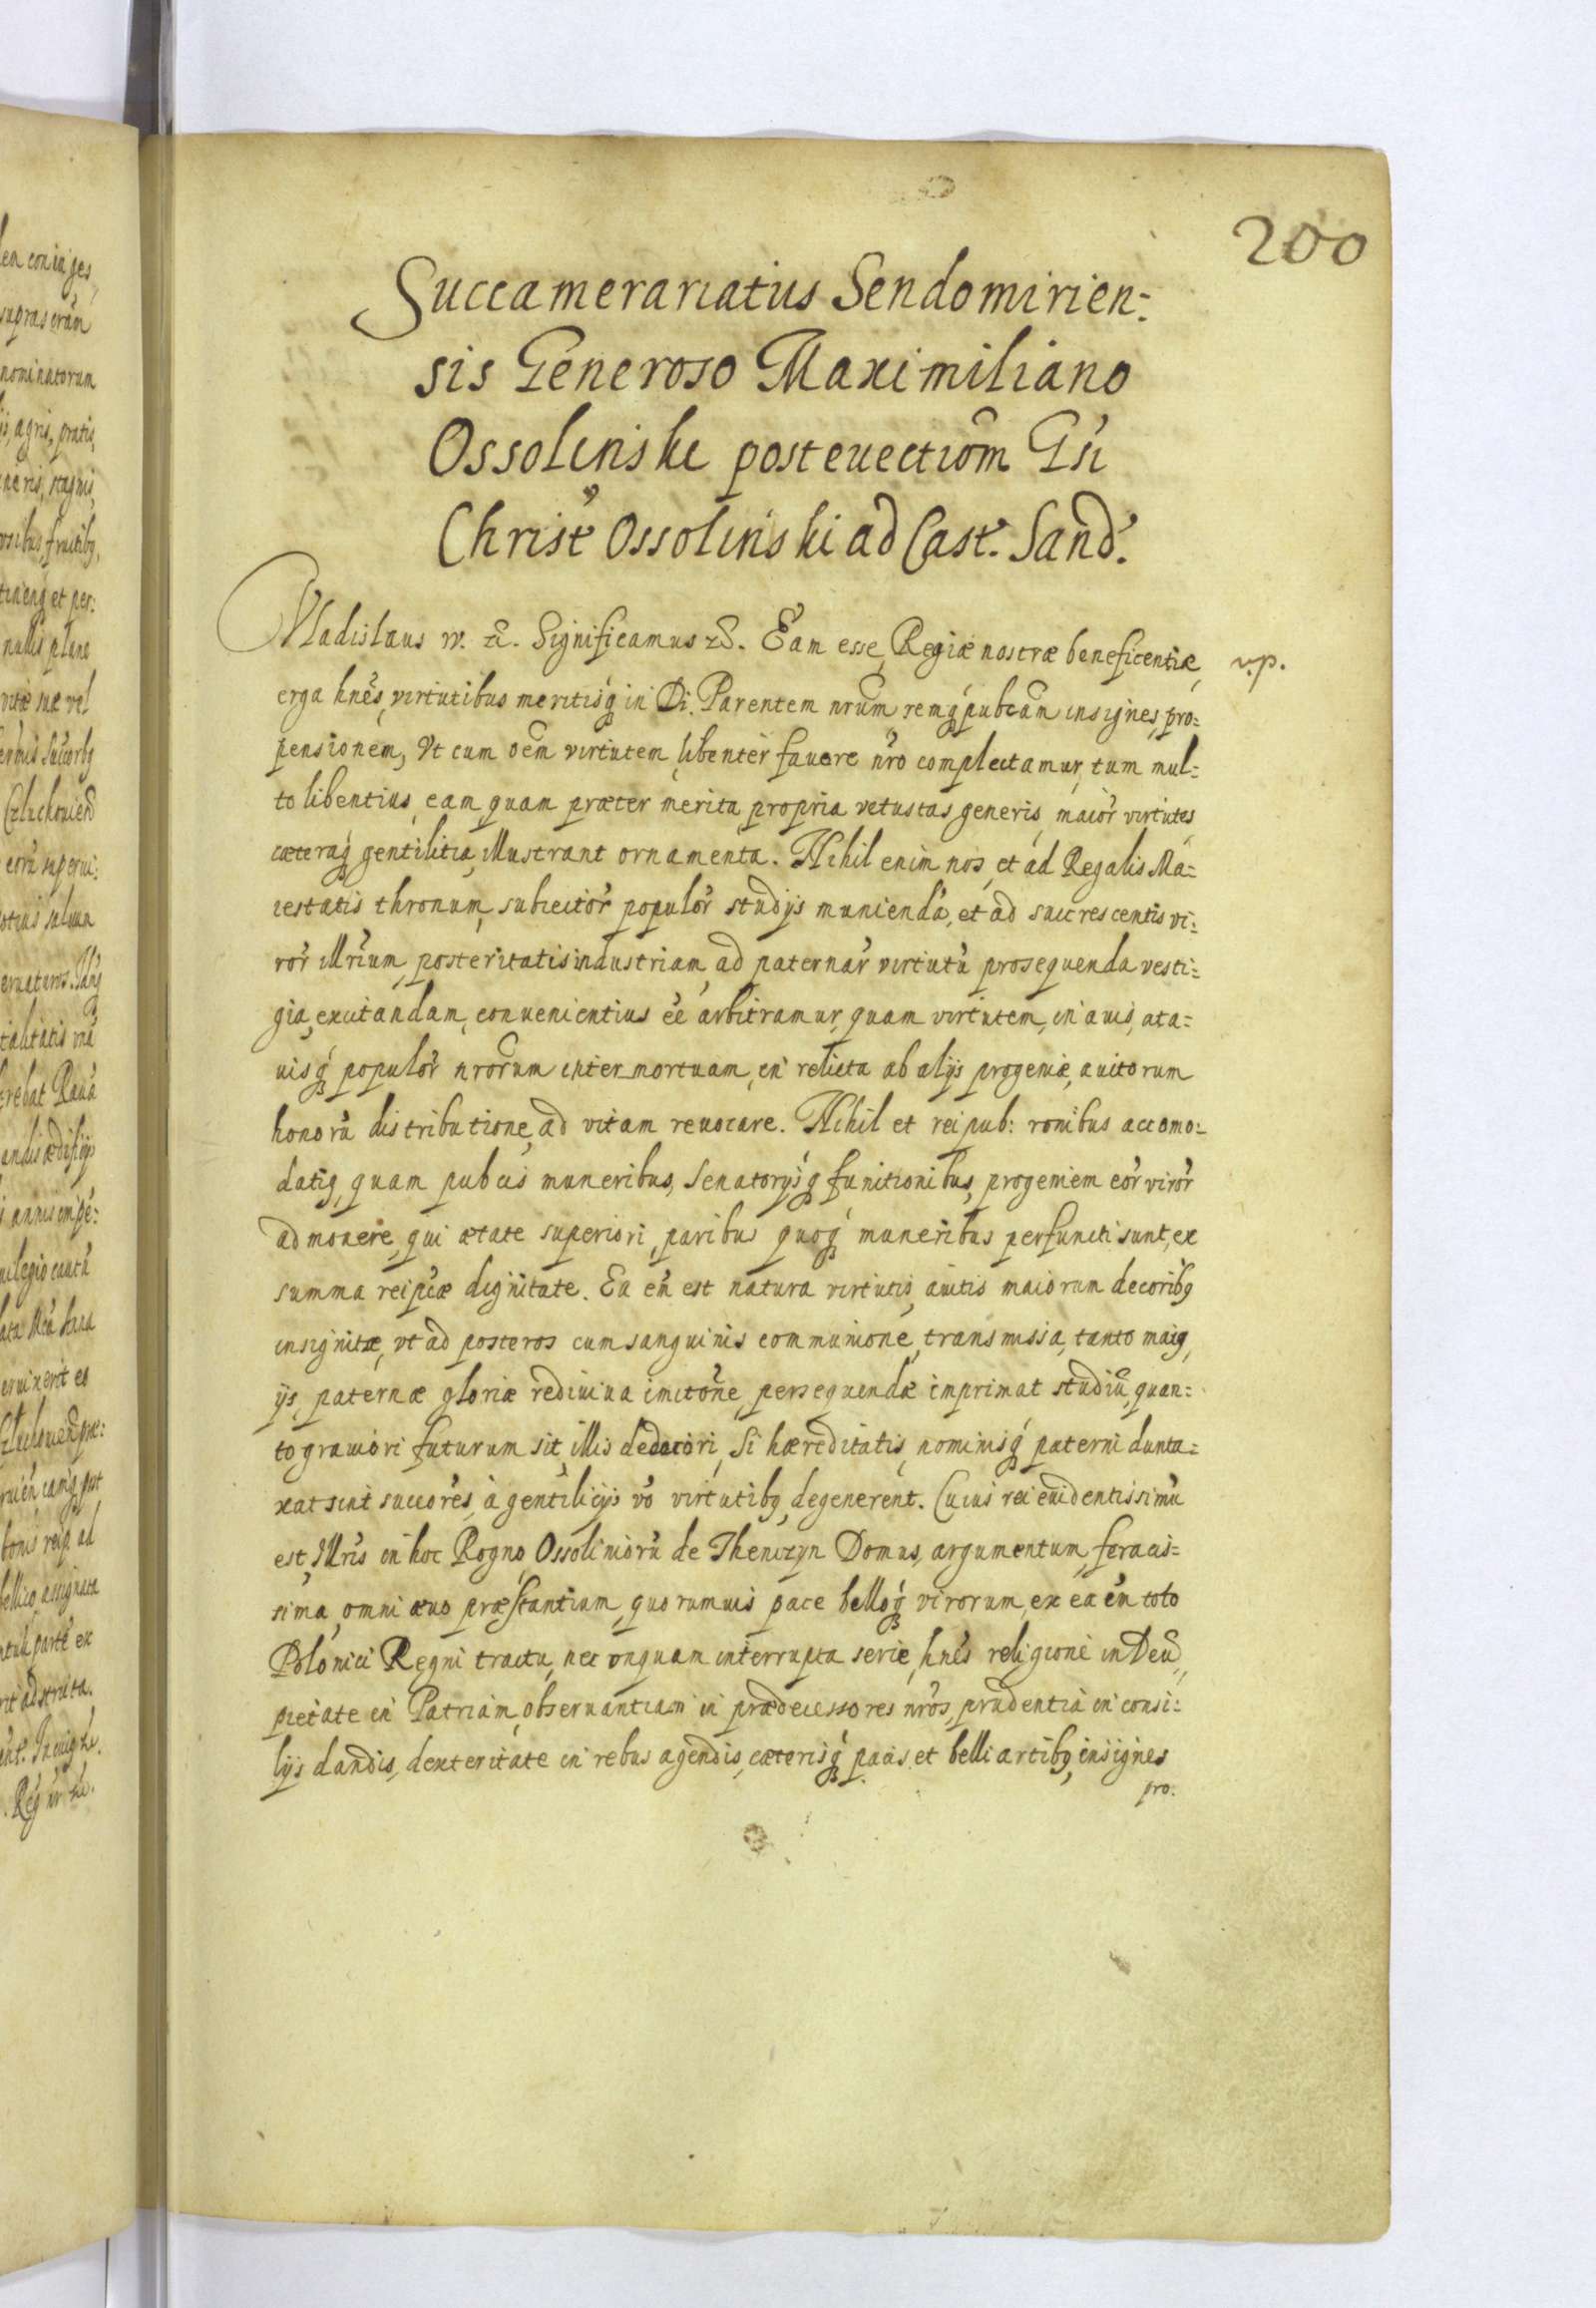 200
Succamerariatus Sendomirien:
sis Generoso Maximiliano
Ossolinski post euectiõm Gsi
Christ Ossolinski ad Cast. Sand.
Vladislaus IV. &. Significamus &. Eam esse, Regiæ nostræ beneficentiæ, v.p.
erga hnẽs, virtutibus meritisq́ in Di. Parentem nrũm remq́ pubcãm insignes, pro=
pensionem, Vt cum oẽm virtutem libenter fauore nro complectamur, tum mul=
to libentius, eam, quam præter merita propria vetustas generis, maior virtutes,
cæteraq́ gentilitia, illustrant ornamenta. Nihil enim nos, et ad Regalis Ma=
iestatis thronum, subiector populor studijs muniendũ, et ad succrescentis vi=
ror illrium, posteritatis industriam, ad paternar virtutũ prosequenda vesti=
gia, excitandam, conuenientius eẽ arbitramur, quam virtutem, in auis, ata=
uisq́ populor nrorum intermortuam, in relicta ab alijs progenie, auitorum
honorũ distributione, ad vitam reuocare. Nihil et reipub: ronibus accomo=
datig, quam pubcis muneribus, Senatorijsq́ functionibus, progeniem eor viror
admouere, qui ætate superiori, paribus quoq́ muneribus perfuncti sunt, ex
summa reipcæ dignitate. Ea eñ est natura virtutis, auitis maiorum decoribg
insignitæ, vt ad posteros cum sanguinis communione, transmissa, tanto maig,
ijs, paternæ gloriæ rediuiua imitoñe, persequendæ imprimat studiũ, quan=
to grauiori futurum sit, illis dedecori, Si hæreditatis, nominisq́ paterni dunta=
xat sint succores, à gentilicijs vo virtutibg, degenerent. Cuius rei euidentissimũ
est, Illris in hoc Regno, Ossoliniorũ de Thenczyn Domus, argumentum, feracis=
sima, omni æuo præstantium, quorumuis pace belloq́ virorum, ex ea eñ toto
Polonici Regni tractu, nec vnquam interrupta serie, hnẽs religione in Deũ,
pietate in Patriam, obseruantiam in prædecessores nros, prudentia in consi=
lijs dandis, dexteritate in rebus agendis, cæterisq́ pacis et belli artibg, insignes
pro.